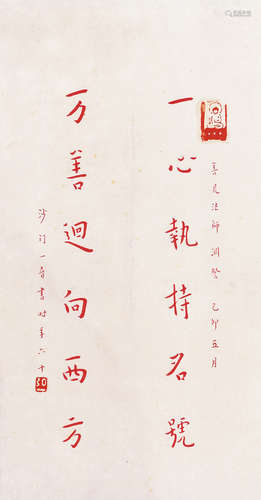 善見法師 己卯五月
一心執持名號
万善迴向西方
沙門一音書時年六十